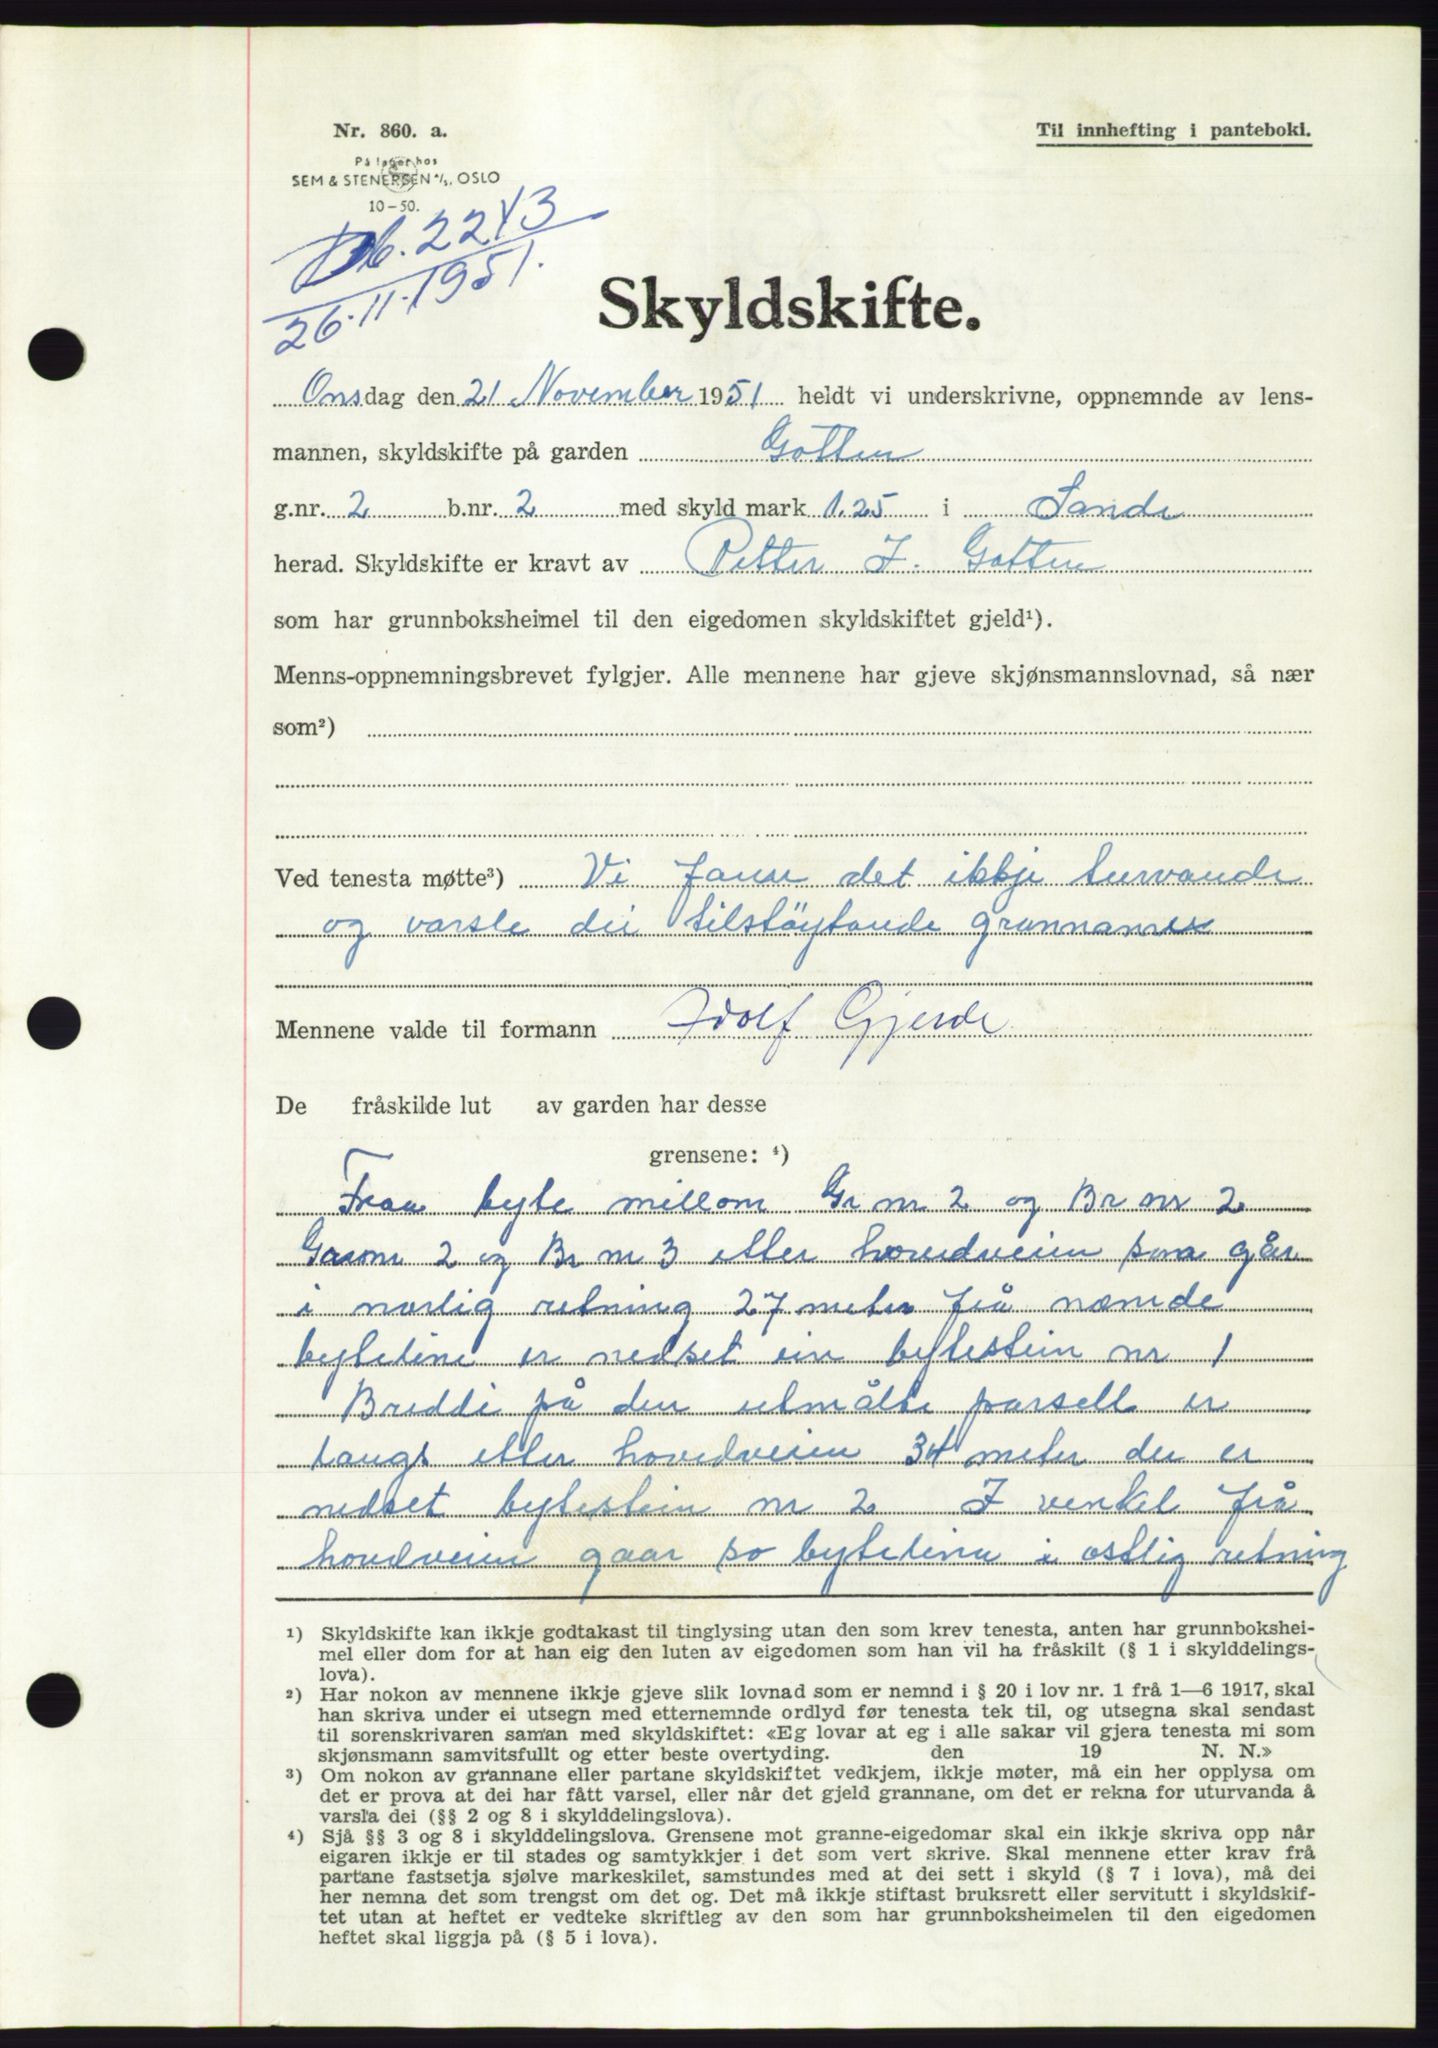 Nr. 860. a.
Til innhefting i panteboki.
På lager hos
SEM & STENERSEN A/S, OSLO
10-50.
Db. 2243
26.11.1951.
Skyldskifte.
Onsdag den 21 November 1951 heldt vi underskrivne, oppnemnde av lens-
mannen, skyldskifte på garden Gotten
g.nr. 2 b.nr. 2 med skyld mark 1.25 i Sande
herad. Skyldskifte er kravt av Petter J. Gotten
som har grunnboksheimel til den eigedomen skyldskiftet gjeld¹).
Menns-oppnemningsbrevet fylgjer. Alle mennene har gjeve skjønsmannslovnad, så nær
som²)
Ved tenesta møtte³) Vi fann det ikkje turvande
og varsle dei tilstøytande grannane
Mennene valde til formann Adolf Gjerde
De fråskilde lut av garden har desse
grensene: ⁴)
Fraa byte millom Gr nr 2 og Br nr 2
2 og Br nr 3 etter hovedveien som går
i norlig retning 27 meter frå nemde
byteline er nedset ein bytestein nr 1
Breddi på den utmålte parsell er
langs etter hovedveien 34 meter der er
nedset bytestein nr 2 I venkel frå
hovedveien gaar so bytelina i østlig retning
1) Skyldskifte kan ikkje godtakast til tinglysing utan den som krev tenesta, anten har grunnbokshei-
mel eller dom for at han eig den luten av eigedomen som han vil ha fråskilt (§ 1 i skylddelings-
lova).
2) Har nokon av mennene ikkje gjeve slik lovnad som er nemnd i § 20 i lov nr. 1 frå 1—6 1917, skal
han skriva under ei utsegn med etternemnde ordlyd før tenesta tek til, og utsegna skal sendast
til sorenskrivaren saman med skyldskiftet: «Eg lovar at eg i alle sakar vil gjera tenesta mi som
skjønsmann samvitsfullt og etter beste overtyding. den 19 N. N.»
3) Om nokon av grannane eller partane skyldskiftet vedkjem, ikkje møter, må ein her opplysa om
det er prova at dei har fått varsel, eller når det gjeld grannane, om det er rekna for uturvanda å
varsla dei (§§ 2 og 8 i skylddelingslova).
4) Sjå §§ 3 og 8 i skylddelingslova. Grensene mot granne-eigedomar skal ein ikkje skriva opp når
eigaren ikkje er til stades og samtykkjer i det som vert skrive. Skal mennene etter krav frå
partane fastsetja sjølve markeskilet, samstundes med at dei sett i skyld (§ 7 i lova), må dei
her nemna det som trengst om det og. Det må ikkje stiftast bruksrett eller servitutt i skyldskif-
tet utan at heftet er vedteke skriftleg av den som har grunnboksheimelen til den eigedomen
heftet skal liggja på (§ 5 i lova).